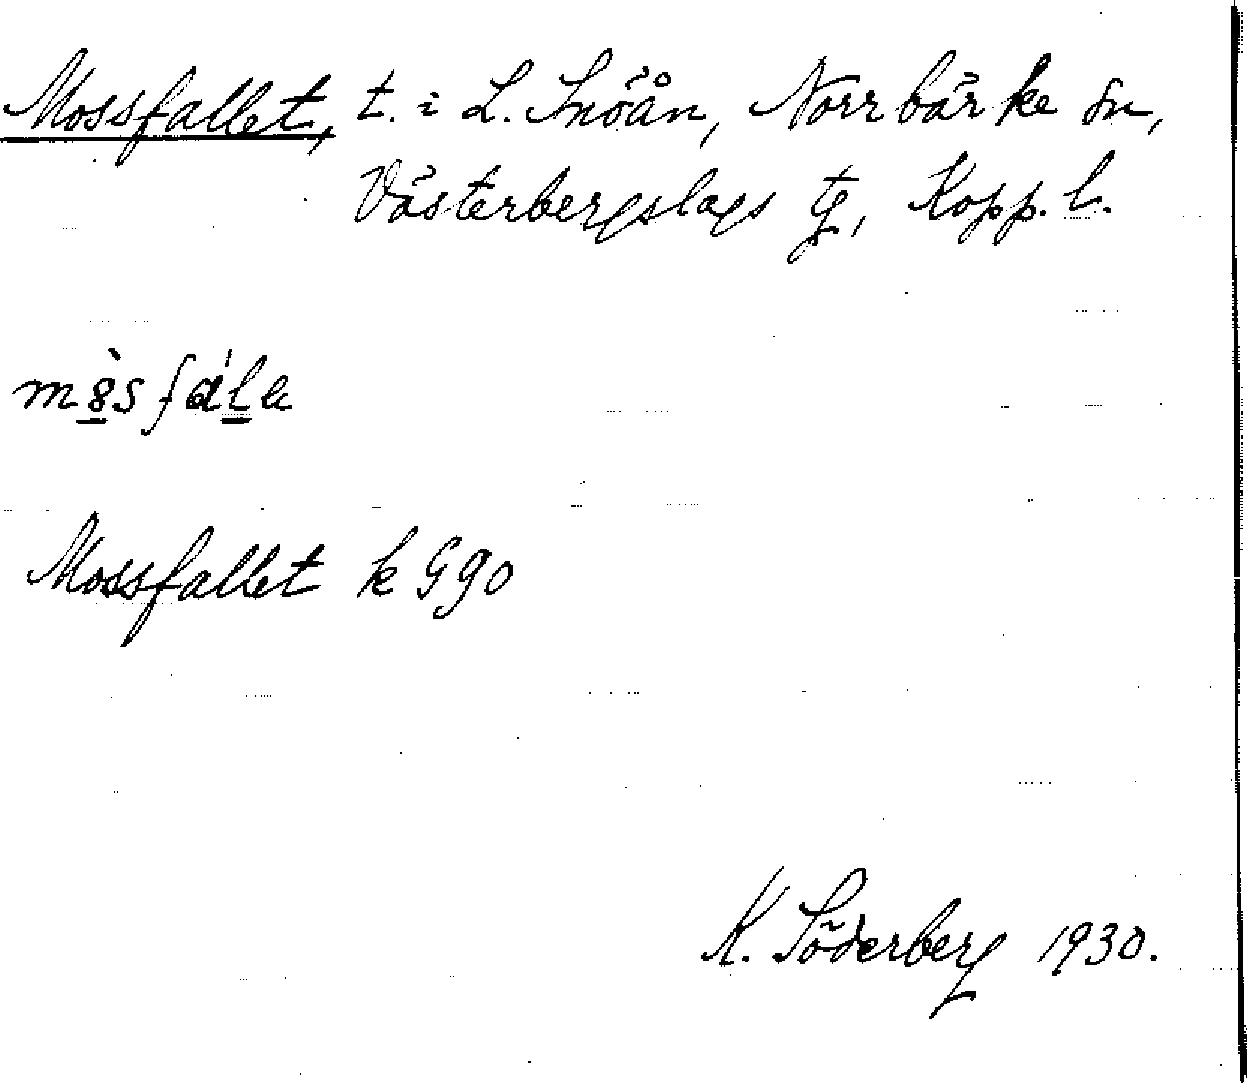 Mossfallet, t. i L. Snöån, Norrbärke sn,
Västerbergslags tg, Kopp. l.
Mossfallet k G90
K. Söderberg 1930.